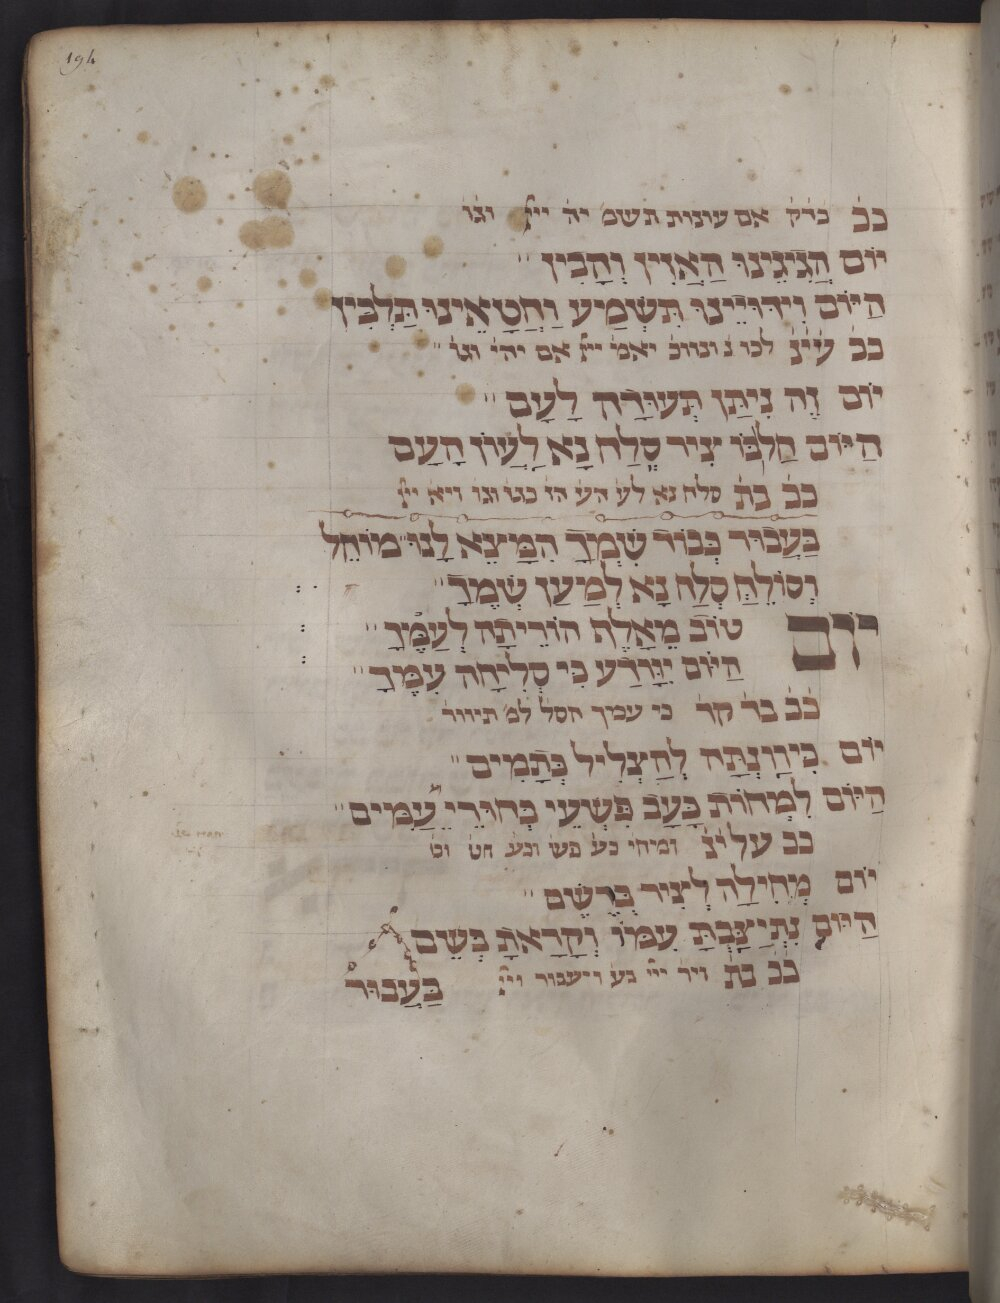 194
ככ ברק אם עונות תשמ יה ייי וגו
יוֹם הֲגִיגֵינוּ הַאֲזִין וְהָבִין
הַיּוֹם וִידּוּיֵינוּ תִּשְׁמַע וַחֲטָאֵינוּ תַּלְבִּין
ככ עינ לכו נ ונווכ יאמ ייי אם יהי וגו
יוֹם זֶה נִיתַּן תְּעוּרָה לָעָם
הַיּוֹם חַלְּבוֹ צִיר סְלַח נָא לַעֲוֹן הָעָם
ככ בת סלח נא לע הע הז כגו וגו ויא ייי
בַּעֲבוּר כְּבוֹד שִׁמְךָ הִמָּצֵא לָנוּ מוֹחֵל
וְסוֹלֵחַ סְלַח נָא לְמַעַן שְׁמֶךָ
יוֹם
טוֹב מֵאָלֶף הוֹרֵיתָה לְעַמֶּךָ
הַיּוֹם יִוָּדַע כִּי סְלִיחָה עִמֶּךָ
ככ בר קר כי עמך הסל למ תיוור
יוֹם כִּיוַּונְתָּה לְהַצְלִיל כְּתָמִים
הַיּוֹם לִמְחוֹת כָּעָב פִּשְׁעֵי בְּחוּרֵי עַמִּים
ככ על ינ ומיחי כע פש וכע חט וט
יוֹם מְחִילָה לְצִיר בְּרֶשֶׁם
הַיּוֹם נִתְיַצַּבְתָּ עִמּוֹ וְקָרָאתָ בְּשֵׁם
ככ בת ויר ייי בע ויעבור ויי
בַּעֲבוּר